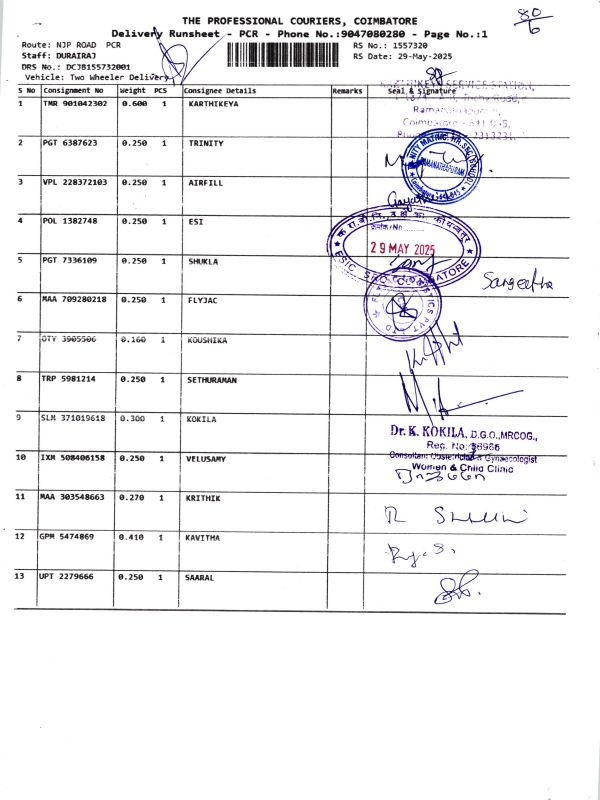 80
6
THE PROFESSIONAL COURIERS, COIMBATORE
Delivery Runsheet - PCR - Phone No.:9047080280 - Page No.:1
Route: NJP ROAD PCR
RS No.: 1557320
Staff: DURAIRAJ
RS Date: 29-May-2025
DRS No.: DCJB155732001
Vehicle: Two Wheeler Delivery
S No Consignment No Weight PCS Consignee Details Remarks Seal & Signature
KARTHIKEYA SERVICE STATION,
Trichy Road,
1 TMR 901042302 0.600 1 KARTHIKEYA
Coimbatore - 641 045,
2 PGT 6387623 0.250 1 TRINITY
RAMANATHAPURAM
3 VPL 228372103 0.250 1 AIRFILL
4 POL 1382748 0.250 1 ESI
क्रमांक/No
29 MAY 2025
5 PGT 7336109 0.250 1 SHUKLA
Sangeetha
6 MAA 709280218 0.250 1 FLYJAC
7 OTY 3905506 0.160 1 KOUSHIKA
8 TRP 5981214 0.250 1 SETHURAMAN
9 SLM 371019618 0.300 1 KOKILA
Dr. K. KOKILA, D.G.O.,MRCOG.,
Consultant Obstetrician & Gynaecologist
Women & Child Clinic
10 IXM 508406158 0.250 1 VELUSAMY
11 MAA 303548663 0.270 1 KRITHIK
12 GPM 5474869 0.410 1 KAVITHA
13 UPT 2279666 0.250 1 SAARAL